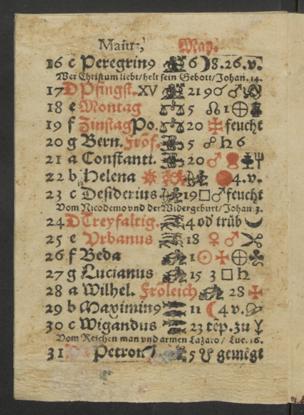 May.
16 c Peregrin9 6 8.26.v.
Wer Christum liebt/helt sein Gebott/Johan. 14.
17 D Pfingst. XV 21 9 ♂ ♂
18 e Montag 5
19 f Zinstag Po. 20 feucht
20 g Bern. Fros. 5 ☍ 6
21 a Constanti. 20 ♂
22 b Helena 4.v.
23 c Desiderius 19 □ ♂ feucht
Vom Nicodemo vnd der Widergeburt/Johan 3.
24 D Treyfaltig. 4 od trüb
25 e Vrbanus 18 ♀ ♂
26 f Beda 1 ☉
27 g Lucianus 15 3 □ ♄
28 a Wilhel. Fröleich 28
29 b Maximin9 11 4 v.
30 c Wigandus 23 tep. zu
Vom Reichen man vnd armen Lazaro/ Luc. 16.
31 D Petron. 5